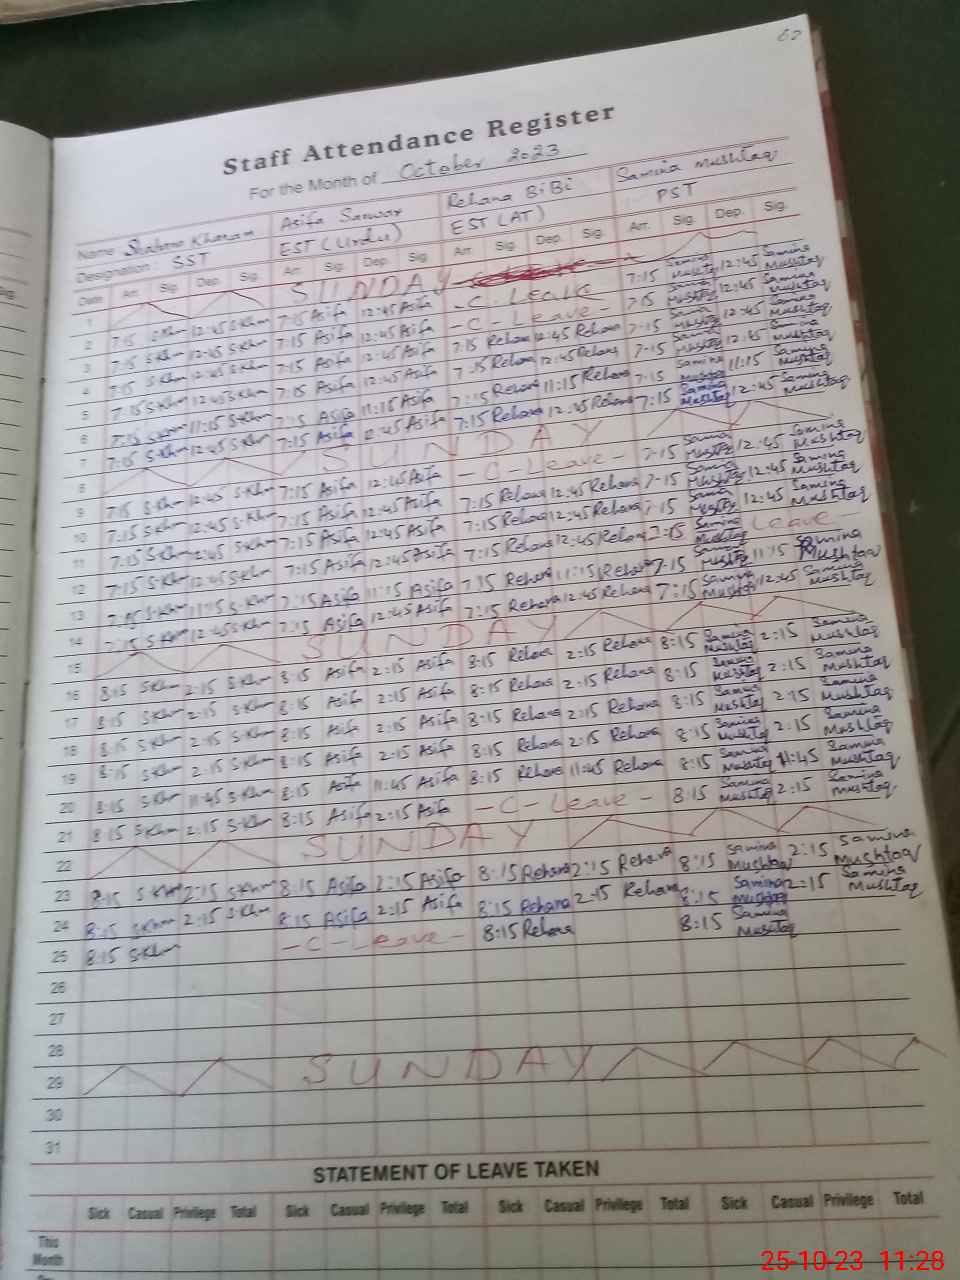 60
Staff Attendance Register
For the Month of October 2023
Name Shabana Khanam Asifa Sarwar Rehana BiBi Samina Mushtaq
Designation: SST EST (Urdu) EST (AT) PST
Date Arr. Sig. Dep. Sig. Arr. Sig. Dep. Sig. Arr. Sig. Dep. Sig. Arr. Sig. Dep. Sig.
1 SUNDAY
2 7:15 S.Khm 12:45 S.Khm 7:15 Asifa 12:45 Asifa -C-Leave 7:15 Samina Mushtaq 12:45 Samina Mushtaq
3 7:15 S.Khm 12:45 S.Khm 7:15 Asifa 12:45 Asifa -C-Leave- 7:15 Samina Mushtaq 12:45 Samina Mushtaq
4 7:15 S.Khm 12:45 S.Khm 7:15 Asifa 12:45 Asifa 7:15 Rehana 12:45 Rehana 7:15 Samina Mushtaq 12:45 Samina Mushtaq
5 7:15 S.Khm 12:45 S.Khm 7:15 Asifa 12:45 Asifa 7:15 Rehana 12:45 Rehana 7:15 Samina Mushtaq 12:45 Samina Mushtaq
6 7:15 S.Khm 11:15 S.Khm 7:15 Asifa 11:15 Asifa 7:15 Rehana 11:15 Rehana 7:15 Samina Mushtaq 11:15 Samina Mushtaq
7 7:15 S.Khm 12:45 S.Khm 7:15 Asifa 12:45 Asifa 7:15 Rehana 12:45 Rehana 7:15 Samina Mushtaq 12:45 Samina Mushtaq
8 SUNDAY
9 7:15 S.Khm 12:45 S.Khm 7:15 Asifa 12:45 Asifa -C-Leave- 7:15 Samina Mushtaq 12:45 Samina Mushtaq
10 7:15 S.Khm 12:45 S.Khm 7:15 Asifa 12:45 Asifa 7:15 Rehana 12:45 Rehana 7:15 Samina Mushtaq 12:45 Samina Mushtaq
11 7:15 S.Khm 12:45 S.Khm 7:15 Asifa 12:45 Asifa 7:15 Rehana 12:45 Rehana 7:15 Samina Mushtaq 12:45 Samina Mushtaq
12 7:15 S.Khm 12:45 S.Khm 7:15 Asifa 12:45 Asifa 7:15 Rehana 12:45 Rehana 7:15 Samina Mushtaq Leave-
13 7:15 S.Khm 11:15 S.Khm 7:15 Asifa 11:15 Asifa 7:15 Rehana 11:15 Rehana 7:15 Samina Mushtaq 11:15 Samina Mushtaq
14 7:15 S.Khm 12:45 S.Khm 7:15 Asifa 12:45 Asifa 7:15 Rehana 12:45 Rehana 7:15 Samina Mushtaq 12:45 Samina Mushtaq
15 SUNDAY
16 8:15 S.Khm 2:15 S.Khm 8:15 Asifa 2:15 Asifa 8:15 Rehana 2:15 Rehana 8:15 Samina Mushtaq 2:15 Samina Mushtaq
17 8:15 S.Khm 2:15 S.Khm 8:15 Asifa 2:15 Asifa 8:15 Rehana 2:15 Rehana 8:15 Samina Mushtaq 2:15 Samina Mushtaq
18 8:15 S.Khm 2:15 S.Khm 8:15 Asifa 2:15 Asifa 8:15 Rehana 2:15 Rehana 8:15 Samina Mushtaq 2:15 Samina Mushtaq
19 8:15 S.Khm 2:15 S.Khm 8:15 Asifa 2:15 Asifa 8:15 Rehana 2:15 Rehana 8:15 Samina Mushtaq 2:15 Samina Mushtaq
20 8:15 S.Khm 11:45 S.Khm 8:15 Asifa 11:45 Asifa 8:15 Rehana 11:45 Rehana 8:15 Samina Mushtaq 11:45 Samina Mushtaq
21 8:15 S.Khm 2:15 S.Khm 8:15 Asifa 2:15 Asifa -C-Leave- 8:15 Samina Mushtaq 2:15 Samina Mushtaq
22 SUNDAY
23 8:15 S.Khm 2:15 S.Khm 8:15 Asifa 2:15 Asifa 8:15 Rehana 2:15 Rehana 8:15 Samina Mushtaq 2:15 Samina Mushtaq
24 8:15 S.Khm 2:15 S.Khm 8:15 Asifa 2:15 Asifa 8:15 Rehana 2:15 Rehana 8:15 Samina Mushtaq 2:15 Samina Mushtaq
25 8:15 S.Khm -C-Leave- 8:15 Rehana 8:15 Samina Mushtaq
26
27
28
29 SUNDAY
30
31
STATEMENT OF LEAVE TAKEN
Sick Casual Privilege Total Sick Casual Privilege Total Sick Casual Privilege Total Sick Casual Privilege Total
This
Month
25-10-23 11:28